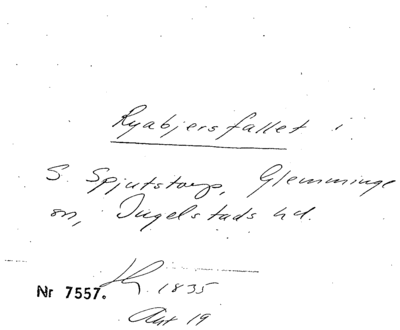 Ryabjersfallet i
S. Spjutstorp, Glemminge
sn, Ingelstads hd.
1835
Nr 7557.
Akt 19